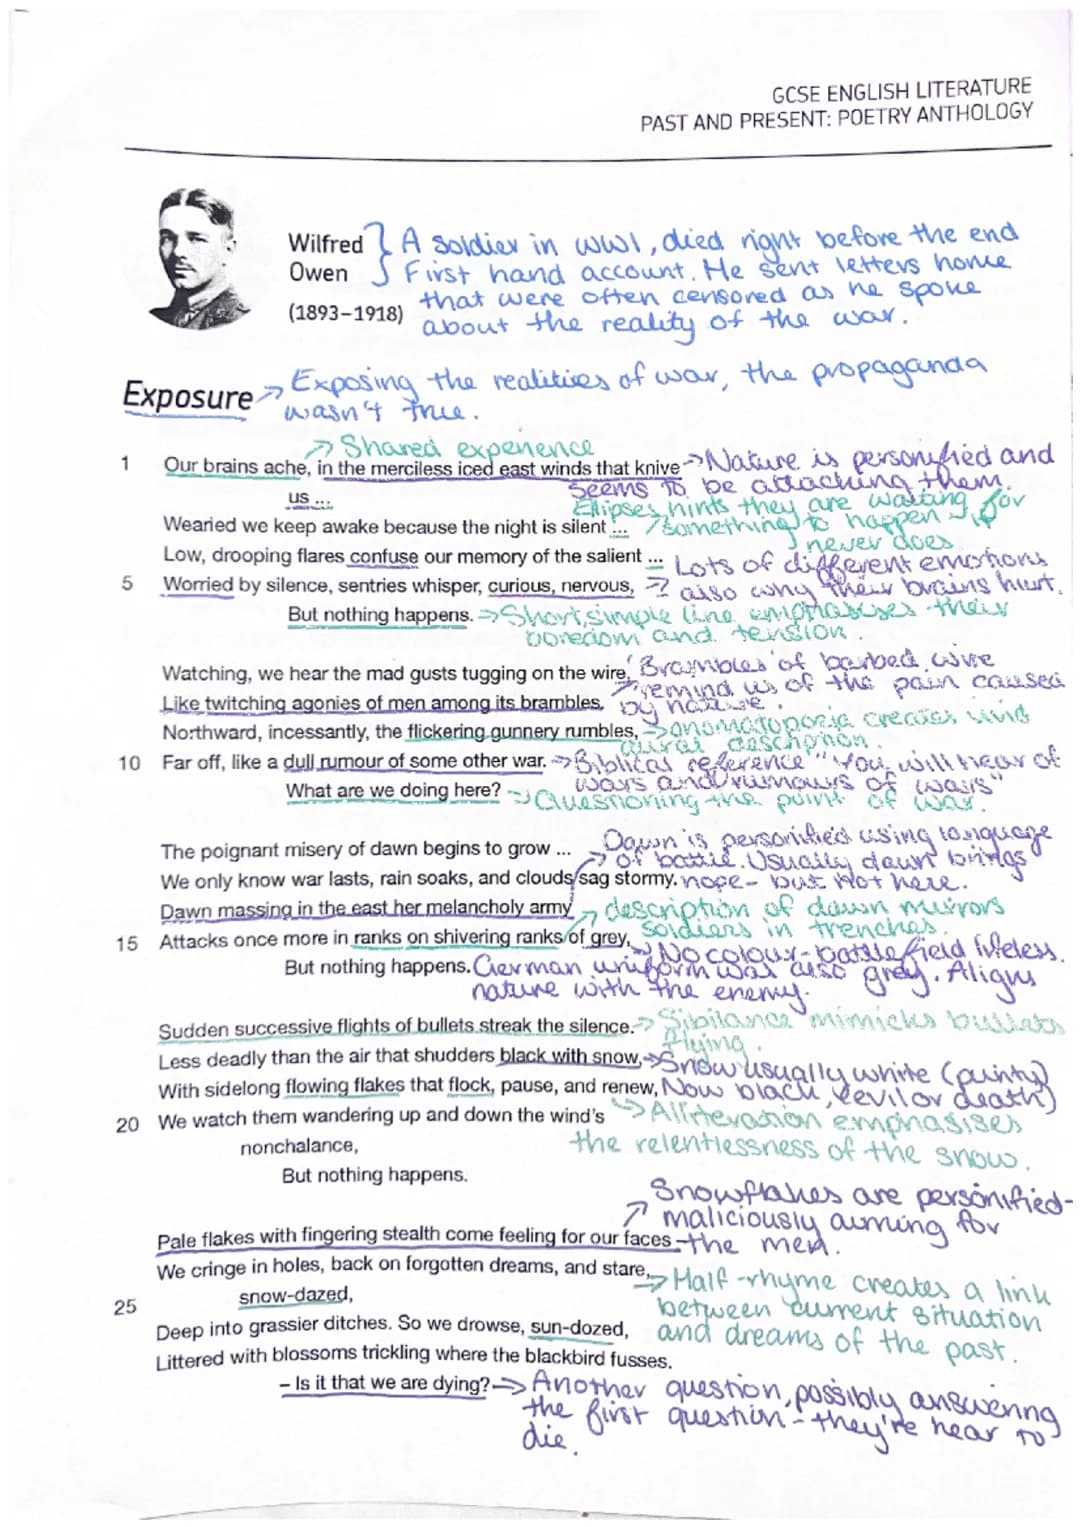 GCSE ENGLISH LITERATURE
PAST AND PRESENT: POETRY ANTHOLOGY
Wilfred
Owen
(1893–1918)
A soldier in WW1, died right before the end
First hand account. He sent letters home
that were often censored as he spoke
about the reality of the war.
Exposure → Exposing the realities of war, the propaganda
wasn't true.
→ Shared experience
1 Our brains ache, in the merciless iced east winds that knive → Nature is personified and
us ... seems to be attacking them.
Ellipses hints they are waiting for
Wearied we keep awake because the night is silent ... something to happen - it
never does
Low, drooping flares confuse our memory of the salient ... Lots of different emotions
5 Worried by silence, sentries whisper, curious, nervous, → also why their brains hurt.
But nothing happens. → Short, simple line emphasises their
boredom and tension.
Watching, we hear the mad gusts tugging on the wire, 'Brambles' of barbed wire
Like twitching agonies of men among its brambles. → remind us of the pain caused
by nature.
Northward, incessantly, the flickering gunnery rumbles, → onomatopoeia creates vivid
aural description.
10 Far off, like a dull rumour of some other war. → Biblical reference "You will hear of
wars and rumours of wars"
What are we doing here? → Questioning the point of war.
The poignant misery of dawn begins to grow ... Dawn is personified using language
→ of battle. Usually dawn brings
We only know war lasts, rain soaks, and clouds sag stormy. hope - but not here.
Dawn massing in the east her melancholy army → description of dawn mirrors
soldiers in trenches.
15 Attacks once more in ranks on shivering ranks of grey, → No colour - battlefield lifeless.
But nothing happens. German uniform was also grey. Aligns
nature with the enemy.
Sudden successive flights of bullets streak the silence. → Sibilance mimicks bullets
flying.
Less deadly than the air that shudders black with snow, → Snow usually white (purity)
With sidelong flowing flakes that flock, pause, and renew, Now black, (evil or death)
20 We watch them wandering up and down the wind's → Alliteration emphasises
nonchalance, the relentlessness of the snow.
But nothing happens.
Snowflakes are personified -
→ maliciously aiming for
Pale flakes with fingering stealth come feeling for our faces - the men.
We cringe in holes, back on forgotten dreams, and stare, → Half-rhyme creates a link
25 snow-dazed, between current situation
Deep into grassier ditches. So we drowse, sun-dozed, and dreams of the past.
Littered with blossoms trickling where the blackbird fusses.
– Is it that we are dying? → Another question, possibly answering
the first question - they're near to
die.